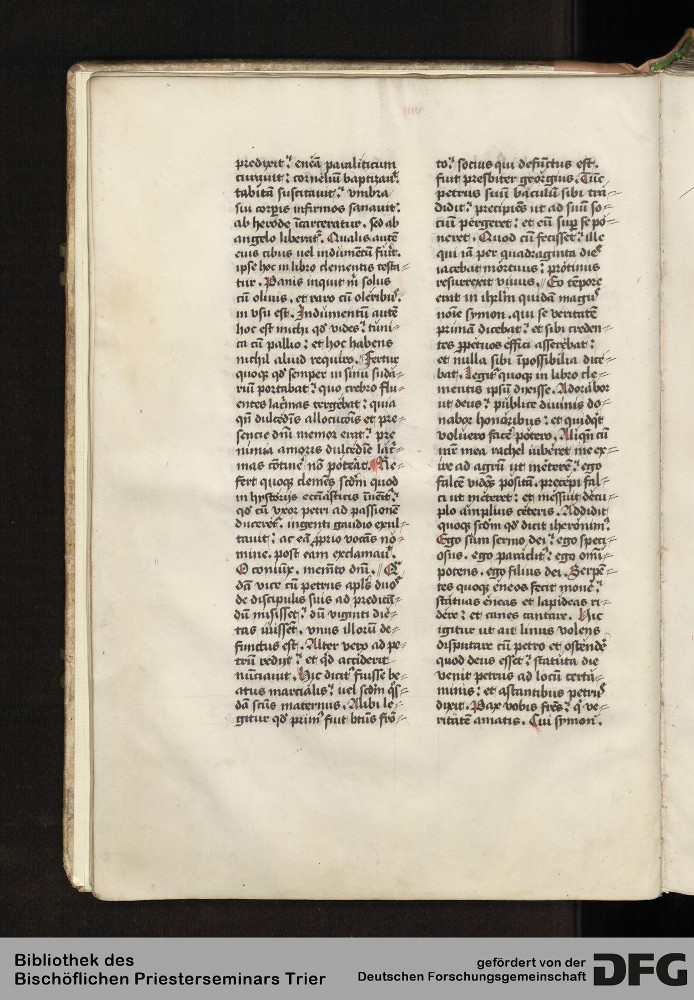 predixit. eneā paraliticum
curauit: cornelium baptizauᵗ.
tabitā suscitauit. vmbra
sui corpis infirmos sanauit.
ab herode īcarceratur. sed ab
angelo liberatᵘ. Qualis autē
eius cibus uel indumētū fuit.
ipse hoc in libro clementis testa-
tur. Panis inquit mⁱ solus
cū oliuis. et raro cū oleribᵘ.
in vsu est. Indumentū autē
hoc est michi qd vides. tuni-
ca cū pallio: et hoc habens
nichil aliud requiro. Fertur
quoqꝫ qd semper in sinu suda-
riū portabat. quo crebro flu-
entes lacrīmas tergebat: quia
qn̄ dulcedīs allocucōis et pre-
sencie dnī memor erat. pre
nimia amoris dulcedīe lacri-
mas cōtinē nō poterat. Re-
fert quoqꝫ clemēs scdm quod
in hystorijs ecclīasticis inueīt.
qd cū vxor petri ad passionē
duceret. ingenti gaudio exul-
tauit: ac eā pprio vocās nō-
mine. post eam exclamauᵗ.
O coniūx. memēto dnī. Qᵃ-
dā vice cū petrus apls duoˢ
de discipulis suis ad predicā-
dū misisset. dū viginti die-
tas iuissēt. vnus illorū de-
functus est. Alter vero ad pe-
trū redijt. et qd acciderit
nūciauit. Hic dicitᵘ fuisse be-
atus marcialis. uel scdm qⁱs-
dā scūs maternus. Alibi le-
gitur qd primᵘ fuit btūs frō-
to. socius qui defūctus est.
fuit presbiter georgius. Tūc
petrus suū baculū sibi tra-
didit. precipiēs ut ad suū so-
ciū pergeret: et eū sup se po-
neret. Quod cū fecisset. ille
qui iā per quadraginta dieˢ
iacebat mortuus. protinus
resurrexit viuus. Eo tēpore
erat in ihrlm quidā maguˢ
noīe symon. qui se veritatē
primā dicebat. et sibi creden-
tes ppetuos effici asserebat:
et nulla sibi īpossibilia dice-
bat. Legitᵘ quoqꝫ in libro cle-
mentis ipsū dixisse. Adorabor
ut deus. publice diuinis do-
nabor honoribus: et quidqt
voluero facē potero. Aliqn̄ cū
mr̄ mea rachel iuberet me ex-
ire ad agrū ut meterē. ego
falcē vidēs positā. precepi fal-
ci ut meteret: et messuit decu-
plo āmplius ceteris. Addidit
quoqꝫ scdm qd dicit iheronimᵘ.
Ego sum sermo dei. ego speci-
osus. ego paraclitᵘ. ego omī-
potens. ego filius dei. Serpē-
tes quoqꝫ eneos fecit mouē.
statuas eneas et lapideas ri-
dere: et canes cantare. Hic
igitur ut ait linus volens
disputare cū petro et ostendē
quod deus esset. statuta die
venit petrus ad locū certa-
minis: et astantibus petruˢ
dixit. Pax vobis fres. qⁱ ve-
ritatē amatis. Cui symon.
Bibliothek des
Bischöflichen Priesterseminars Trier
gefördert von der
Deutschen Forschungsgemeinschaft
DFG